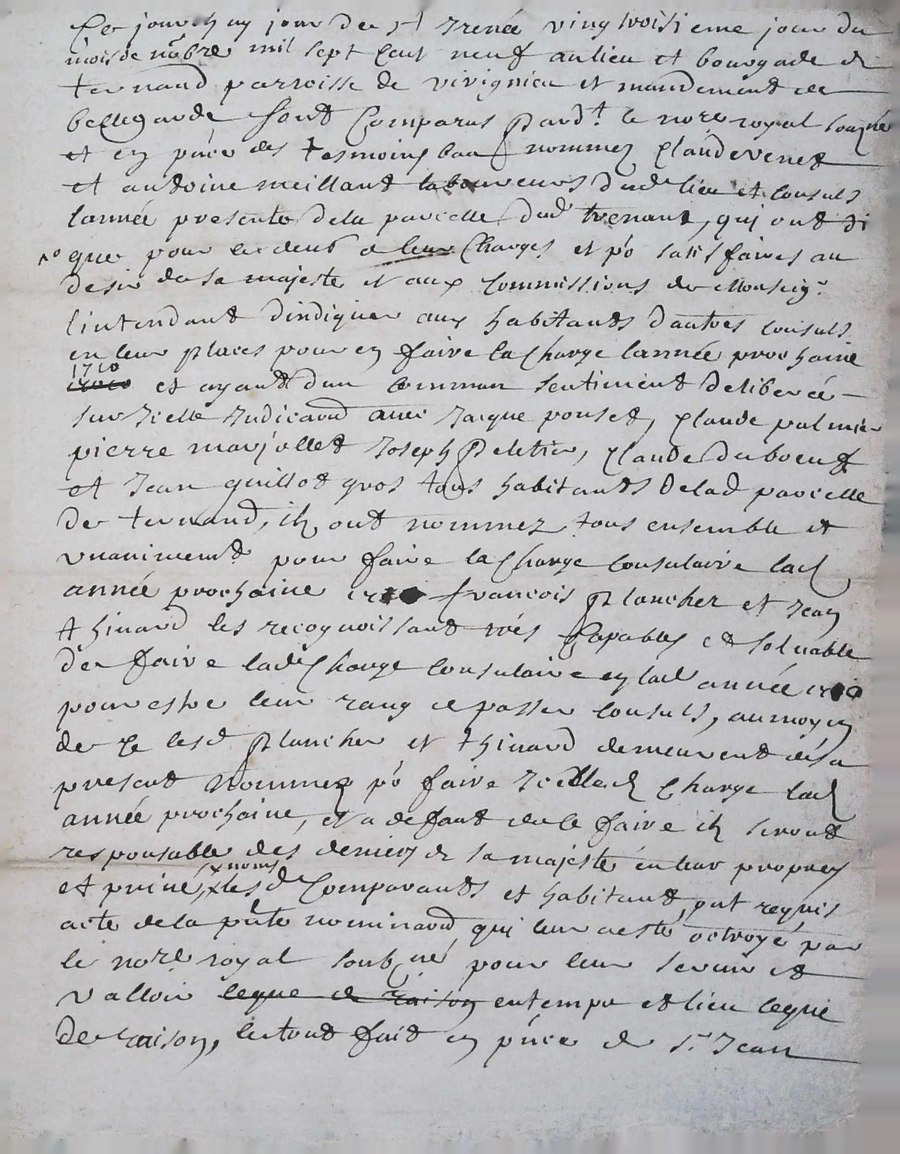 Ce jourdhuy jour de st Irenée vingtroisieme jour du
mois de nobre mil sept cent neuf au lieu et bourgade de
ternand parroisse de virignieu et mandement de
bellegarde sont comparus pardt le nore royal soubzné
et en pñce des tesmoins bas nommez Claude venet
et antoine meillant laboureurs dud lieu et consuls
lannée presente de la parcelle dud trenant, qui ont di
que pour le deub de leur Charges et po satisfaires au
desir de sa majeste et aux commissions de Monseigr
lintendant dindiquer aux habitants dautres consuls
en leur places pour en faire la Charge lannée prochaine
1710
et ayant dun commun sentiment deliberée
sur Icelle Indicaõn avec Jacque ponset, Claude palmier
pierre marjollet Joseph Peletier, Claude Duboeuf
et Jean guillot gros tous habitants de lad parcelle
de ternand, ilz ont nommez tous ensemble et
vnanimemt pour faire la Charge consulaire lad
année prochaine françois Plancher et Jean
thinard les recognoissant trés Capables et soluable
de faire lade Charge consulaire en lad année
pour estre leur rang de passer consuls, au moyen
de Ce lesd Plancher et thinard demeurent dés a
present nommez po faire Icelle Charge lad
année prochaine, et a defaut de le faire ilz seront
responsable des deniers de sa majesté en leur propres
x noms
et priué, x lesd Comparants et habitant ont requis
acte de la pñte nominaõn qui leur a esté octroyé par
le nore royal soubzné pour leur seruir et
valloir leque de raison en temps et lieu leque
de raison, le tout fait en pñce de sr Jean